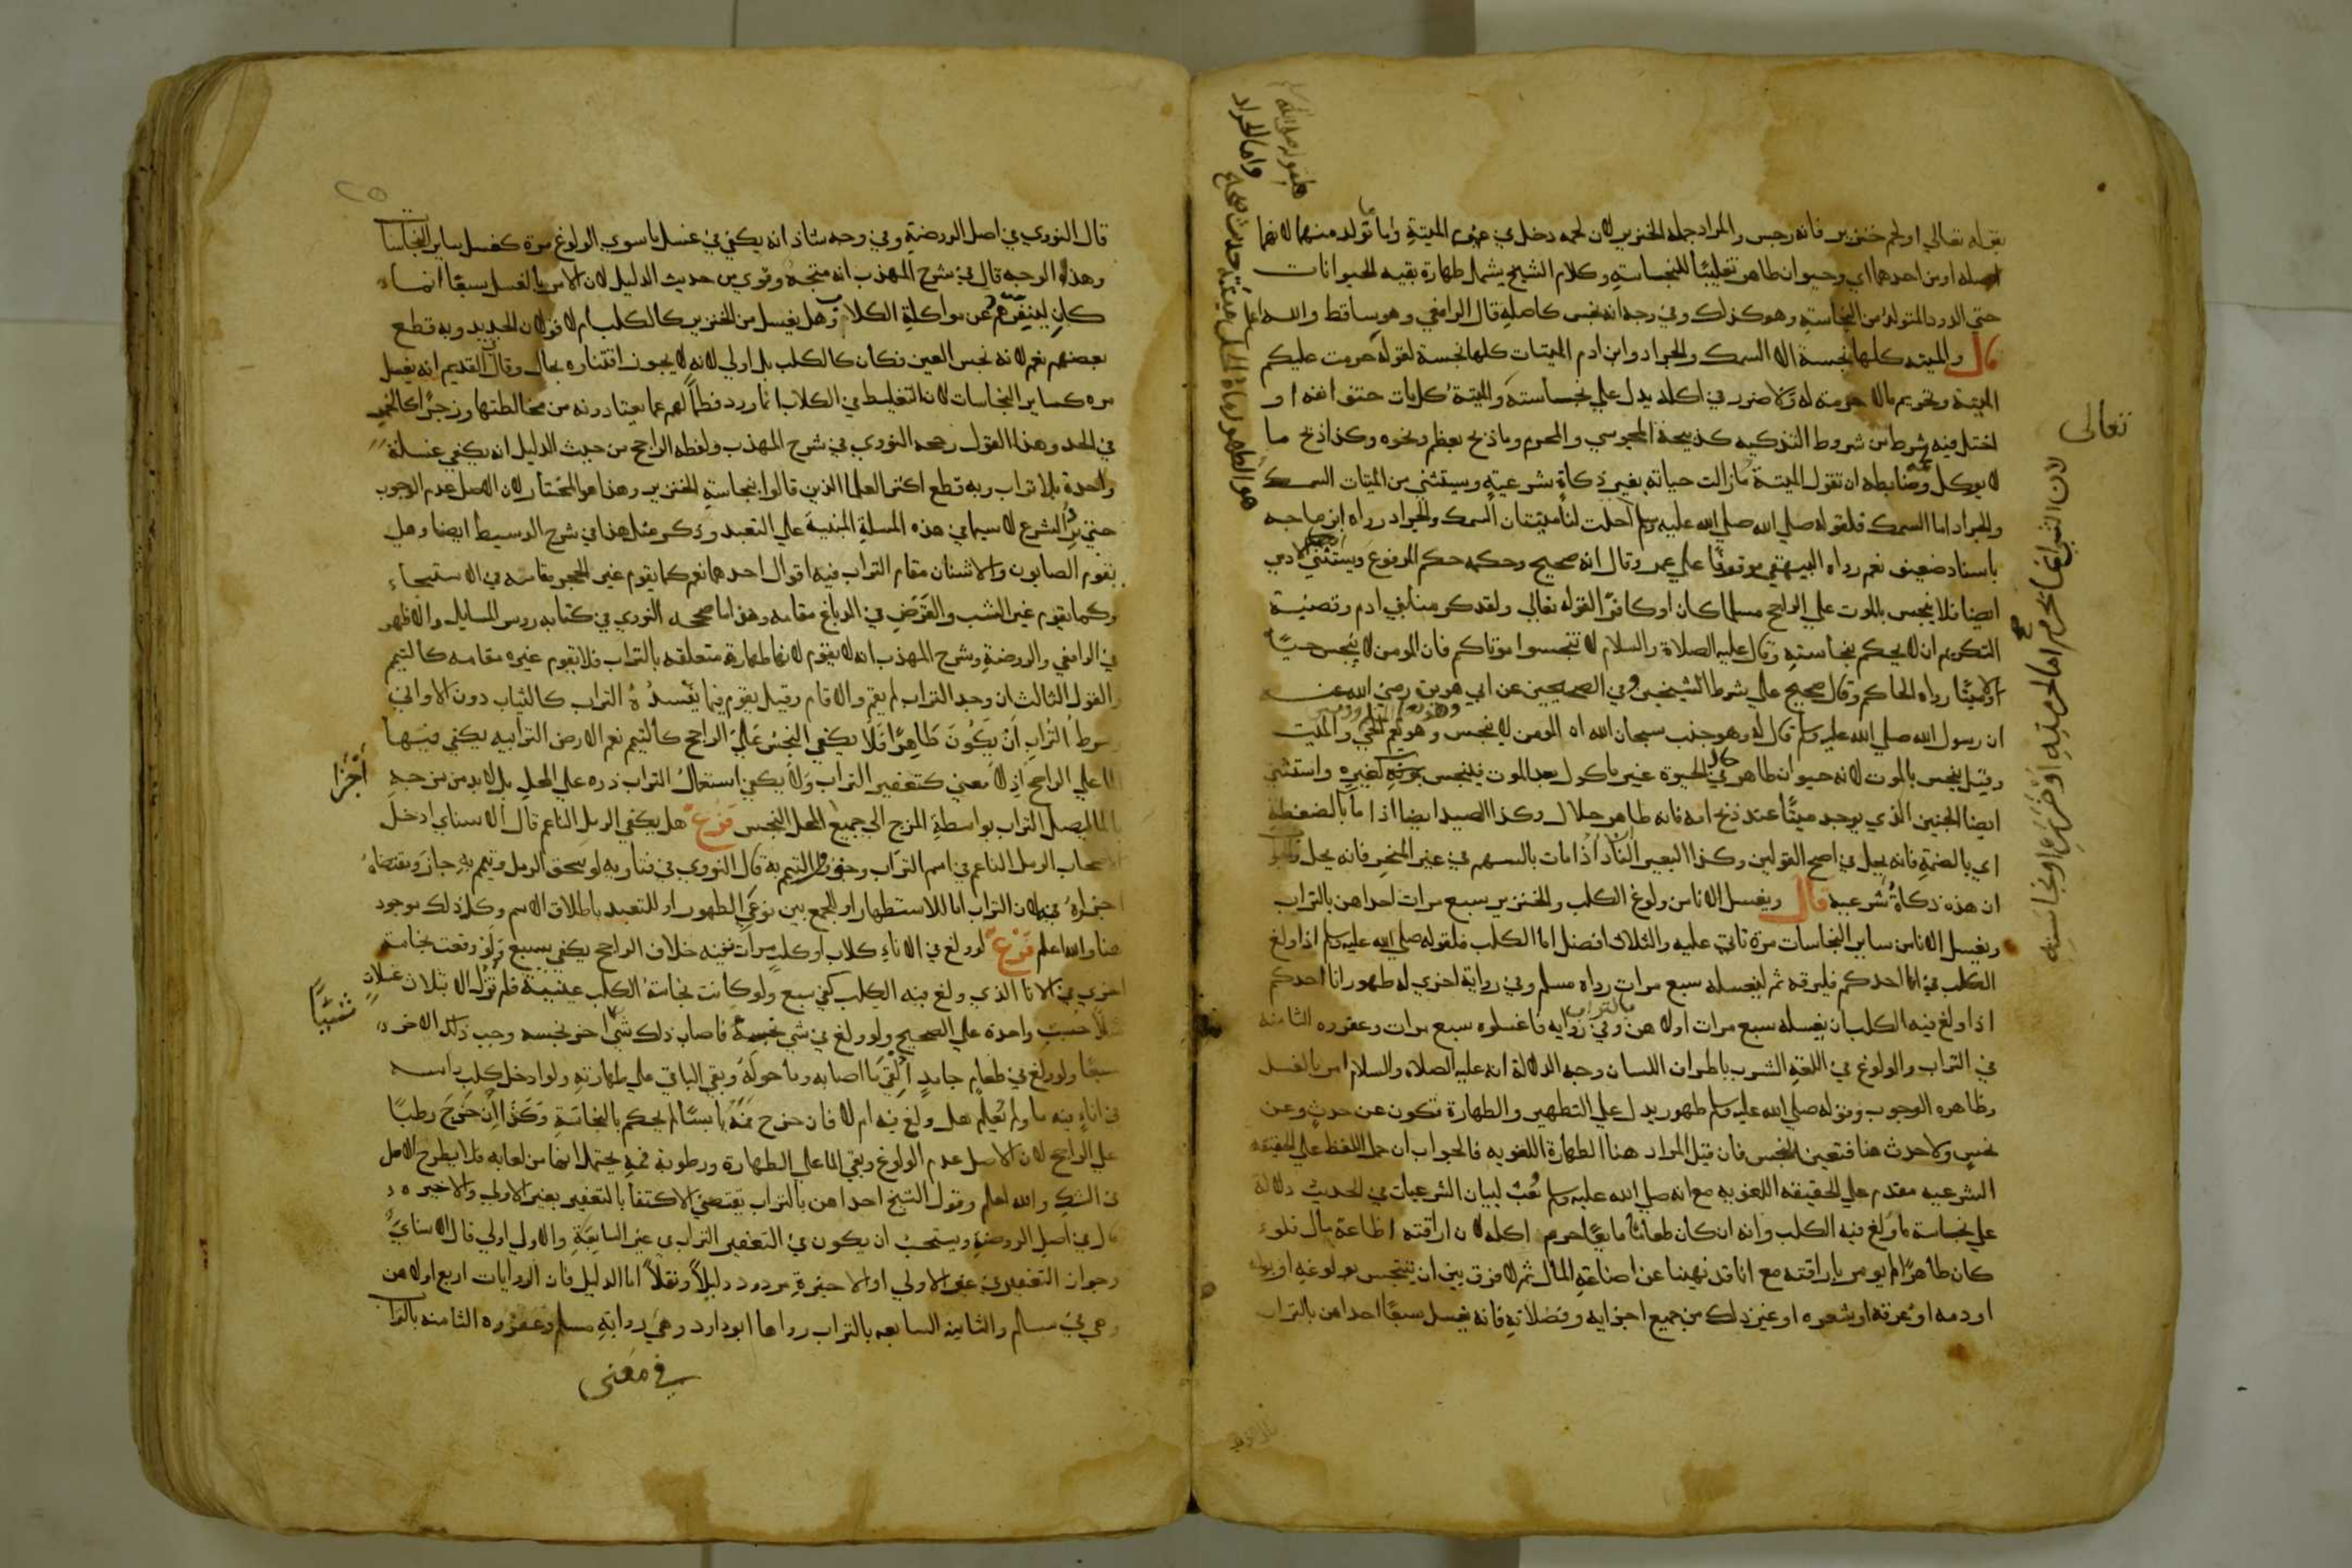 بقوله تعالى او لحم خنزير فانه رجس والمراد جملة الخنزير لان لحمه دخل في الميتة وما تولد منهما لانهما
اصله او من احدهما اي وحيوان طاهر تغليبًا للنجاسة وكلام الشيخ يشمل طهارة بقيه الحيوانات
حتى الدود المتولد من النجاسة وهو كذلك وفي وجه انه نجس كاصله قال الرافعي وهو ساقط والله اعلم
قال والميته كلها نجسة الا السمك والجراد وابن ادم الميتات كلها نجسة لقوله حرمت عليكم
الميتة وتحريم مالا حرمته له ولا ضرر في اكله يدل على نجاسته والميتة كل مات حتف انفه او
اختل فيه شرط من شروط التذكيه كذبيحة المجوسي والمحرم وما ذبح بعظم ونحوه وكذا ذبح ما
لا يوكل وضابطه ان تقول الميتة ما زالت حياته بغير ذكاة شرعية ويستثنى من الميتات السمك
والجراد اما السمك فلقوله صلى الله عليه وسلم احلت لنا ميتتان السمك والجراد رواه ابن ماجه
باسناد ضعيف نعم رواه البيهقي موقوفًا على عمر وقال انه صحيح وحكمه حكم المرفوع ويستثنى الادمي
ايضا فلا ينجس بالموت على الراجح مسلما كان او كافرًا لقوله تعالى ولقد كرمنا بني ادم وقضية
التكريم ان لا يحكم بنجاسته وقال عليه الصلاة والسلام لا تنجسوا موتاكم فان المومن لا ينجس حيًا
ولا ميتًا رواه الحاكم وقال صحيح على شرط الشيخين وفي الصحيحين عن ابي هريرة رضي الله عنه
ان رسول الله صلى الله عليه وسلم قال له وهو جنب سبحان الله ان المومن لا ينجس وهو يعم الحي والميت
وقيل ينجس بالموت لانه حيوان طاهر في الحيوة غير ماكول بعد الموت فينجس بموته كغيره واستثنى
ايضا الجنين الذي يوجد ميتًا عند ذبح امه فانه طاهر حلال وكذا الصيد ايضا اذا مات بالضغطة
اي بالضمة فانه يحل في اصح القولين وكذا البعير الناد اذا مات بالسهم في غير المنحر فانه يحل
ان هذه ذكاة شرعيه قال ويغسل الانا من ولوغ الكلب والخنزير سبع مرات احداهن بالتراب
ويغسل الانا من ساير النجاسات مرة تاتي عليه والثلاث افضل اما الكلب فلقوله صلى الله عليه وسلم اذا ولغ
الكلب في انا احدكم فليرقه ثم ليغسله سبع مرات رواه مسلم وفي رواية اخرى له طهور انا احدكم
اذا ولغ فيه الكلب ان يغسله سبع مرات اولاهن بالتراب وفي رواية فاغسلوه سبع مرات وعفروه الثامنة
في التراب والولوغ في اللغة الشرب باطراف اللسان وجه الدلالة انه عليه الصلاه والسلام امر بالغسل
وظاهره الوجوب وقوله صلى الله عليه وسلم طهور يدل على التطهير والطهارة تكون عن حدث وعن
نجس ولا حدث هنا فتعين النجس فان قيل المراد هنا الطهارة اللغويه فالجواب ان حمل اللفظ على الحقيقة
الشرعيه مقدم على الحقيقه اللغويه مع انه صلى الله عليه وسلم بعث لبيان الشرعيات في الحديث دلالة
على نجاسة ما ولغ فيه الكلب وانه ان كان طعامًا مايعًا حرم اكله لان اراقته اضاعة مال فلو
كان طاهرًا لم يومر باراقته مع انا قد نهينا عن اضاعة المال ثم لا فرق بين ان يتنجس بولوغه او بوله
او دمه او عرقه او شعره او غير ذلك من جميع اجزايه وفضلاته فانه يغسل سبعًا احداهن بالتراب
تعالى
لان الشي انما يحرم اما لحرمته او ضرره او نجاسته
واما الجراد
فلقوله صلى الله
٢٥
قال النووي في اصل الروضة وفي وجه شاذ انه يكفي في غسل ما سوى الولوغ مرة كغسل ساير النجاسات
وهذا الوجه قال في شرح المهذب انه متجه وقوي من حديث الدليل لان الامر بالغسل سبعًا انما
كان لينفرهم عن مواكلة الكلاب وهل يغسل من الخنزير كالكلب ام لا قولان الجديد وبه قطع
بعضهم نعم لانه نجس العين فكان كالكلب بل اولى لانه لا يجوز اقتناوه بحال وقال القديم انه يغسل
مره كساير النجاسات لان التغليظ في الكلاب انما ورد فطمًا لهم عما يعتادونه من مخالطتها وزجرًا كالخمر
في الحد وهذا القول رجحه النووي في شرح المهذب ولفظه الراجح من حيث الدليل انه يكفي غسلة
واحدة بلا تراب وبه قطع اكثر العلما الذين قالوا بنجاسة الخنزير وهذا هو المختار لان الاصل عدم الوجوب
حتى يرد الشرع لاسيما في هذه المسلة المبنية على التعبد وذكر مثل هذا في شرح الوسيط ايضا وهل
يقوم الصابون والاشنان مقام التراب فيه اقوال احدها نعم كما يقوم غير الحجر مقامه في الاستنجاء
وكما يقوم غير الشب والقرض في الدباغ مقامه وهذا ما صححه النووي في كتابه روس المسايل والاظهر
في الرافعي والروضة وشرح المهذب انه لا يقوم لانها طهارة متعلقه بالتراب فلا يقوم غيره مقامه كالتيمم
والقول الثالث ان وجد التراب لم يقم والا قام وقيل يقوم فيما يفسده التراب كالثياب دون الاواني
وشرط التراب ان يكون طاهرًا فلا يكفي النجس على الراجح كالتيمم نعم الارض الترابيه يكفي فيها
الما على الراجح اذ لا معنى كتعفير التراب ولا يكفي استعمال التراب ذره على المحل بل لابد من مزجه
بالما ليصل التراب بواسطة المزج الى جميع اجزا المحل النجس فرع هل يكفي الرمل الناعم قال الاسناي ادخل
الاصحاب الرمل الناعم في اسم التراب وجوزوا التيمم به قال النووي في فتاويه لو سحق الرمل وتيمم به جاز ومقتضاه
اجزاوه هنا لان التراب اما للاستظهار او للجمع بين نوعي الطهور او للتعبد باطلاق الاسم وكل ذلك موجود
هنا والله اعلم فرع لو ولغ في الاناء كلاب او كلب مرات فيه خلاف الراجح يكفي سبع ولو وقعت نجاسة
اخرى في الانا الذي ولغ فيه الكلب كفى سبع ولو كانت نجاسة الكلب عينية فلم تزل الا بثلاث غسلات
مثلا حسبت واحدة على الصحيح ولو ولغ في شي نجسه فاصاب ذلك شيئًا اخر نجسه وجب ذلك الاخر
سبعًا ولو ولغ في طعام جامد القي ما اصابه وما حوله وبقي الباقي على طهارته ولو ادخل كلب راسه
في اناء فيه ماء ولم يعلم هل ولغ فيه ام لا فان خرج فمه يابسًا لم يحكم بالنجاسة وكذا ان خرج رطبًا
على الراجح لان الاصل عدم الولوغ وبقي الما على الطهارة ورطوبة فمه يحتمل انها من لعابه فلا يطرح الاصل
في الشك والله اعلم وقول الشيخ احداهن بالتراب يقتضي الاكتفا بالتعفير بغير الاولى والاخيره
قال في اصل الروضة ويستحب ان يكون في التعفير التراب في غير السابعة والاولى اولى قال الاسناي
وجواز التعفير في غير الاولى او الاخيرة مردود دليلًا ونقلًا اما الدليل فان الروايات اربع اولاهن
وهي في مسلم والثانيه السابعه بالتراب رواها ابو داود وهي رواية مسلم وعفروه الثامنه بالتراب
اجزا
شيئًا
في معنى